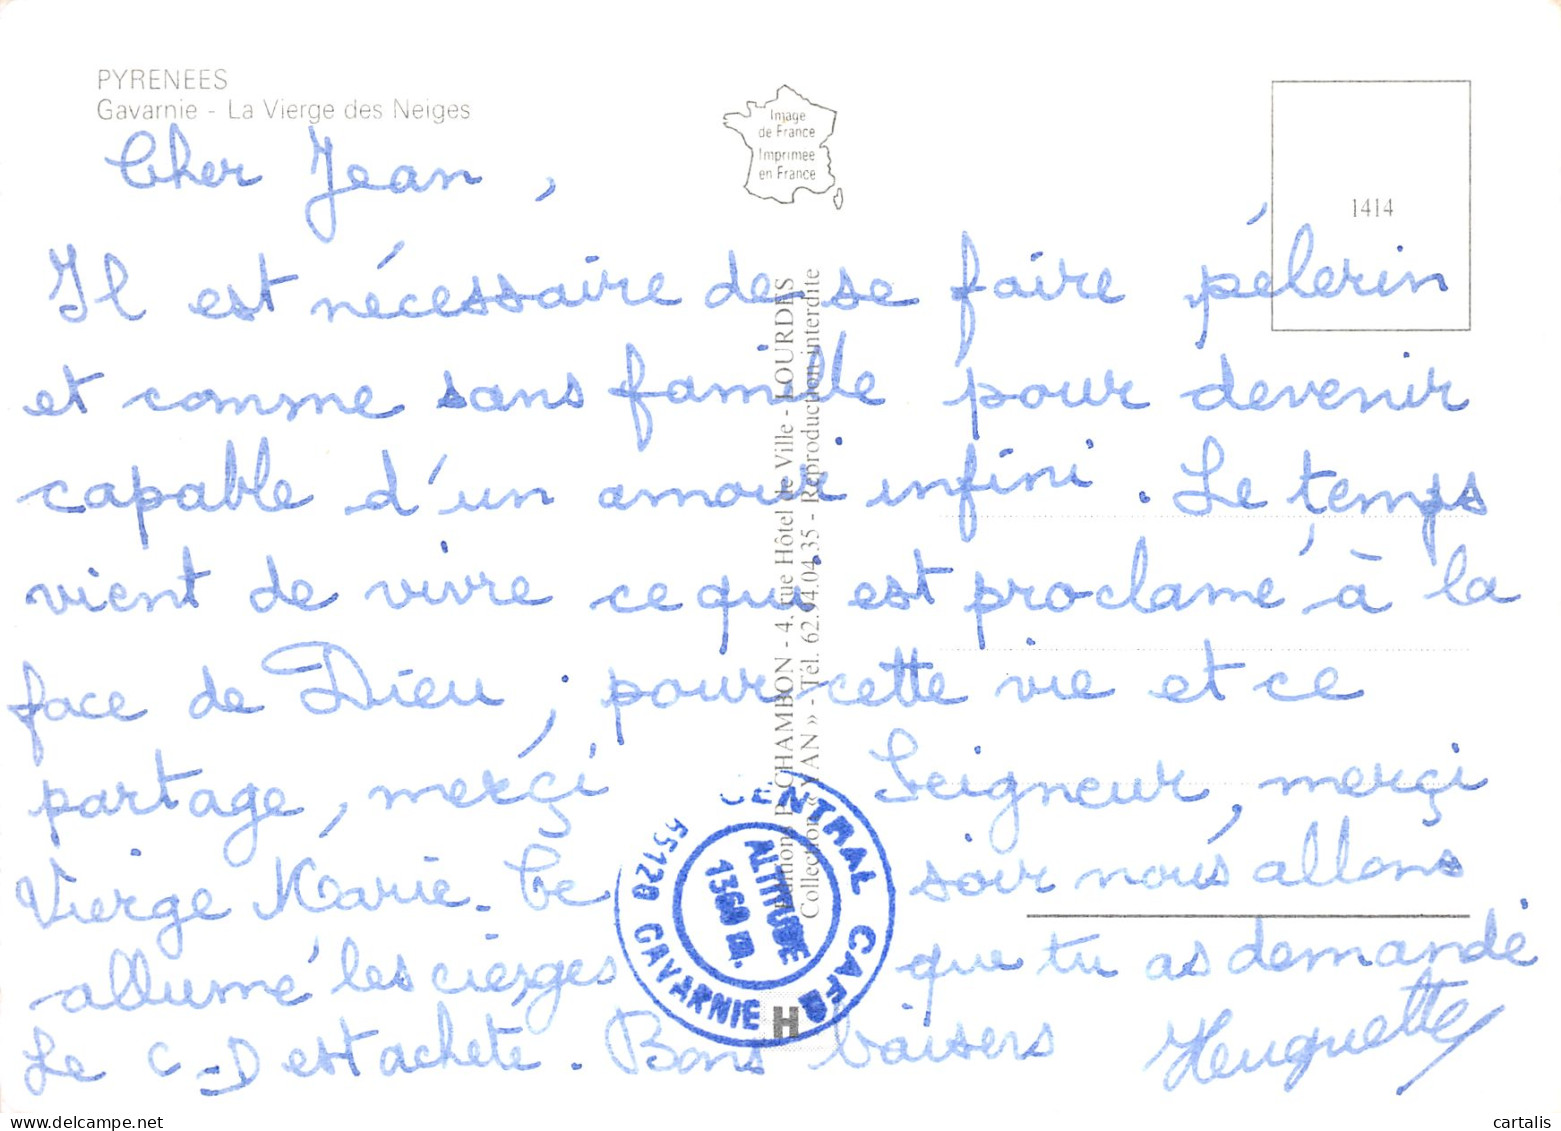 PYRENEES
Gavarnie - La Vierge des Neiges
Image
de France
Imprimée
en France
1414
Cher Jean,
Il est nécessaire de se faire pélerin
et comme sans famille pour devenir
capable d'un amour infini. Le temps
vient de vivre ce qui est proclamé à la
face de Dieu; pour cette vie et ce
partage, merçi Seigneur, merçi
Vierge Marie. Ce soir nous allons
allumé les cierges que tu as demandé
Le C-D est acheté. Bons baisers Huguette
Editions P. CHAMBON - 4, rue Hôtel de Ville - LOURDES
Collection « YAN » - Tél. 62.94.04.35 - Reproduction interdite
CENTRAL CAFE
65120 GAVARNIE
ALTITUDE
1360 m.
H
www.delcampe.net
cartalis